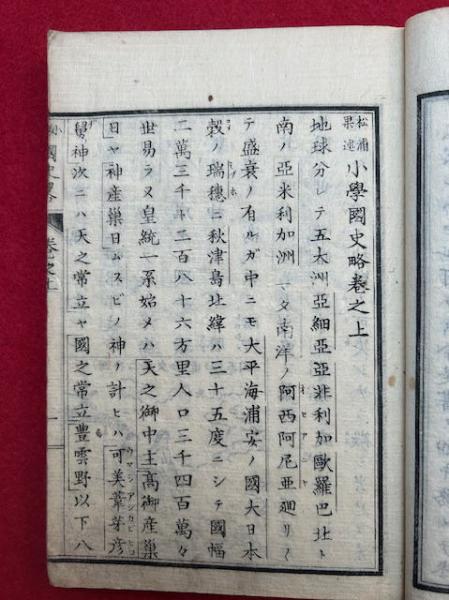 松浦果述 小學國史略卷之上
地球分レテ五大洲亞細亞亞非利加歐羅巴北ト
南ノ亞米利加洲マタ南洋ノ阿西阿尼亜廻リ〱
テ盛衰ノ有ルガ中ニモ大平海浦安ノ國大日本
穀ノ瑞穗ニ秋津島北緯ハ三十五度ニシテ國幅
二萬三千十二百八十六方里人口三千四百萬々
世易ラヌ皇統一系始メハ天之御中主髙御産巣
日ヤ神産巢日ムスビノ神ノ計ヒハ可美葦芽彦
舅神次ニハ天之常立ヤ國之常立豊雲野以下八
國史畧 卷之上